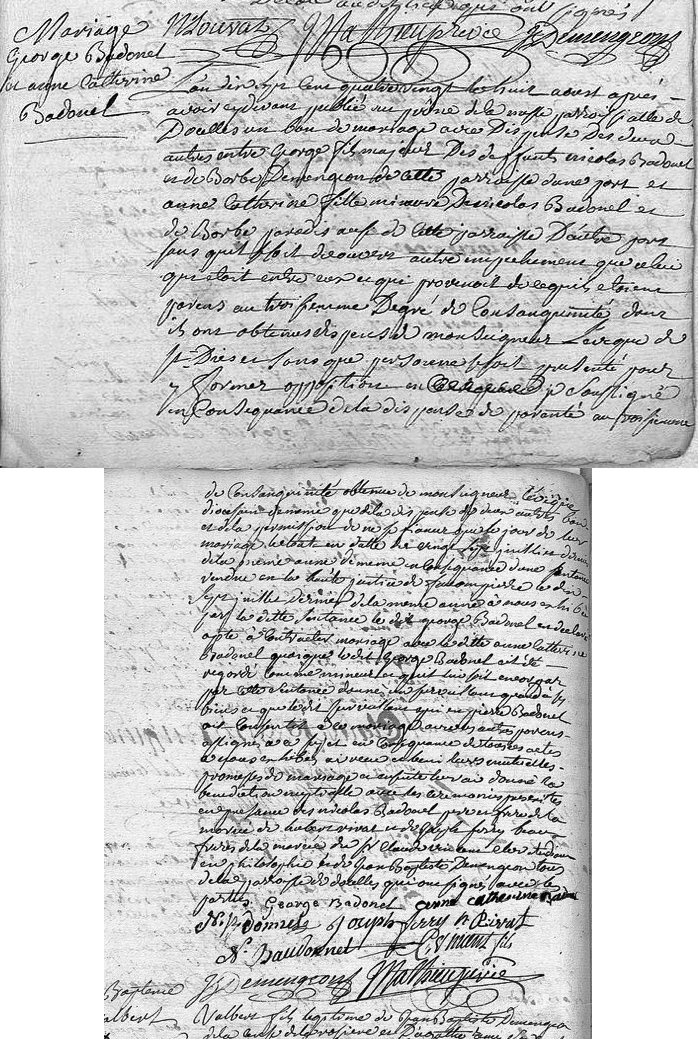 qui ont signés
Mariage
George Badonel
et anne Catherine
Badonel
N Rouvat Mathieu prêtre J Demengeon
L'an dix sept cent quatre vingt le huit aoust après
avoir cydevant publié au prône de la messe parroissialle de
Docelles un ban de mariage avec Dispense Des deux
autres entre George fils majeur Des deffunts nicolas Badonel
et de Barbe Demengeon de cette parroisse d'une part et
anne Catherine fille mineure De nicolas Badonel et
de Barbe paradis aussi de cette parroisse D'autre part
sans qu'il se soit découvert autre empechement que celui
qui etoit entre eux et qui provenoit de ce qu'ils etoient
parens au troisieme Degré de Consanguinité dont
ils ont obtenus dispense de monseigneur Levêque de
St Diez et sans que personne se soit presenté pour
y former opposition je soussigné
en Consequance de la dispense de parenté au troisieme
de Consanguinité obtenue de monseigneur L'évêque
diocesain de meme que de la dispense de deux autres bans
et de la permission de les fiancer que le jour de leur
mariage le tout en datte du vingt sept juillet dernier
de la meme anné de meme en Consequance d'une sentence
rendue en la haute justice de le dix
sept juillet dernier de la meme anné à nous
par la ditte sentence le dit George Badonel est declaré
apte à Contracter mariage avec la ditte anne Catherine
Badonel quoique le dit George Badonel ait été
regardé comme mineur et qu'il lui soit encor par
par cette sentence donné un surveillant quand à ses
biens et que le dit surveillant qui est pierre Badonel
ait Consentit à ce mariage avec les autres parens
assignés a ce sujet en Consequance de touttes actes
à nous exhibés ai receu en leurs mutuelles
promesses de mariage et ensuite leur ai donné la
benediction nuptialle avec les ceremonies prescrites
en presence des nicolas Badonel pere et frere de la
mariée de hubert rivat et de Joseph ferry beaux
freres de la mariée du Sr Claude vincent Etudiant
en philosophie et de Jean Baptiste Demengeon tous
de la parroisse de docelles qui ont signés avec les
parties George Badonel anne catherinne Badonel
Joseph ferry h Rivat
N. Baudonnet C. Vincent fils
J Demengeon Mathieu prêtre
Bapteme
albert
Valbert fils legitime de Jean Baptiste Demengeon